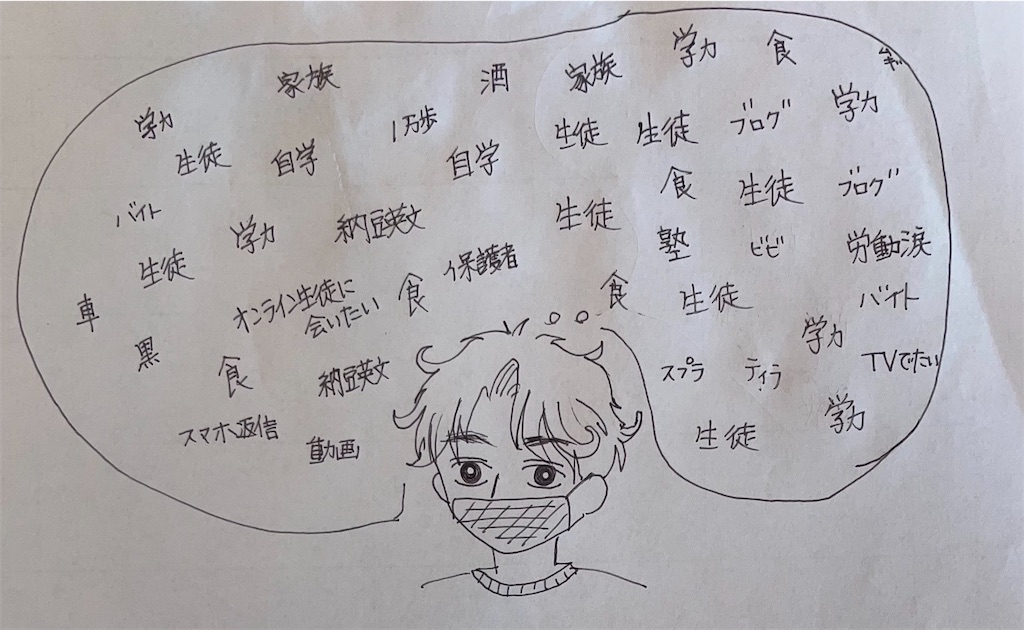 学力
食
家族
酒
家族
学力
1万歩
生徒
生徒
ブログ
学力
生徒
自学
自学
食
生徒
ブログ
バイト
学力
納豆英文
生徒
塾
ビビ
労働涙
生徒
保護者
車
オンライン生徒に
会いたい
食
食
生徒
バイト
黒
食
納豆英文
スプラ
ティラ
学力
TVでたい
スマホ返信
動画
生徒
学力